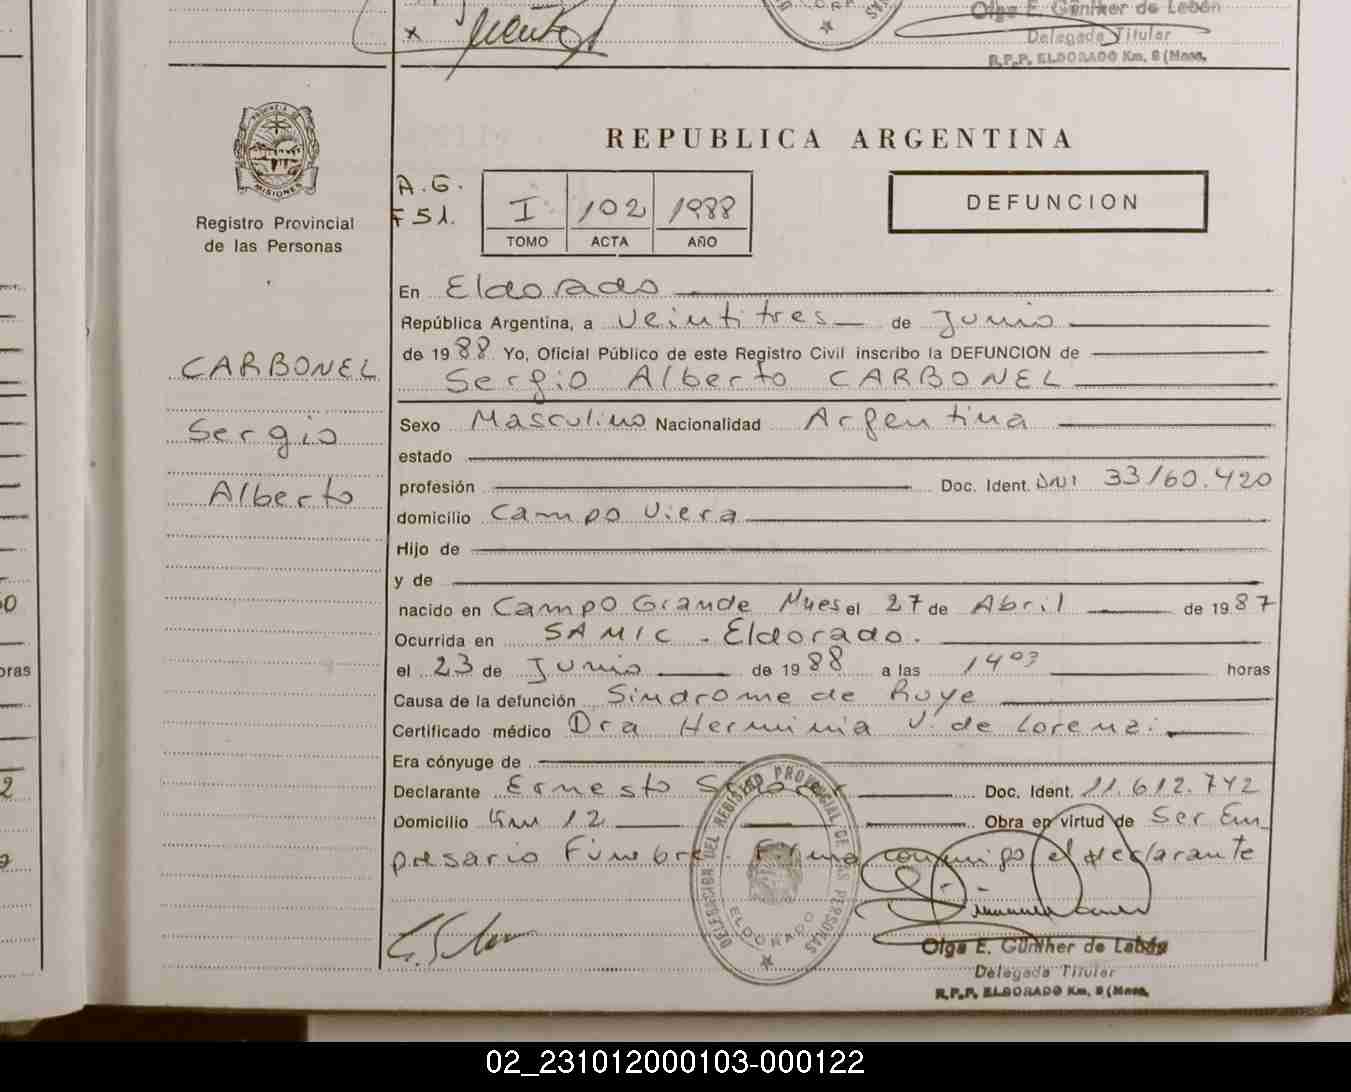 Olga E. Günther de Labán
Delegada Titular
R.P.P. ELDORADO Km. 8 (Mnes.
PROVINCIA DE
MISIONES
REPUBLICA ARGENTINA
Registro Provincial
de las Personas
A.G.
F 51.
I 102 1988
TOMO ACTA AÑO
DEFUNCION
En Eldorado
República Argentina, a veintitres de Junio
de 1988 Yo, Oficial Público de este Registro Civil inscribo la DEFUNCION de
CARBONEL
Sergio
Alberto
Sergio Alberto CARBONEL
Sexo Masculino Nacionalidad Argentina
estado
profesión Doc. Ident. DNI 33/60.420
domicilio Campo Viera
Hijo de
y de
nacido en Campo Grande Mnes el 27 de Abril de 1987
Ocurrida en SAMIC - Eldorado.
el 23 de Junio de 1988 a las 14 03 horas
Causa de la defunción Sindrome de Reye
Certificado médico Dra Herminia V. de Lorenzi
Era cónyuge de
Declarante Ernesto Doc. Ident. 11.612.742
Domicilio Km 12 Obra en virtud de Ser Em
presario Funebre. Firma conmigo el declarante
DELEGACION DEL REGISTRO PROVINCIAL DE LAS PERSONAS
ELDORADO
Olga E. Günther de Labán
Delegada Titular
R.P.P. ELDORADO Km. 8 (Mnes.
oras
02_231012000103-000122